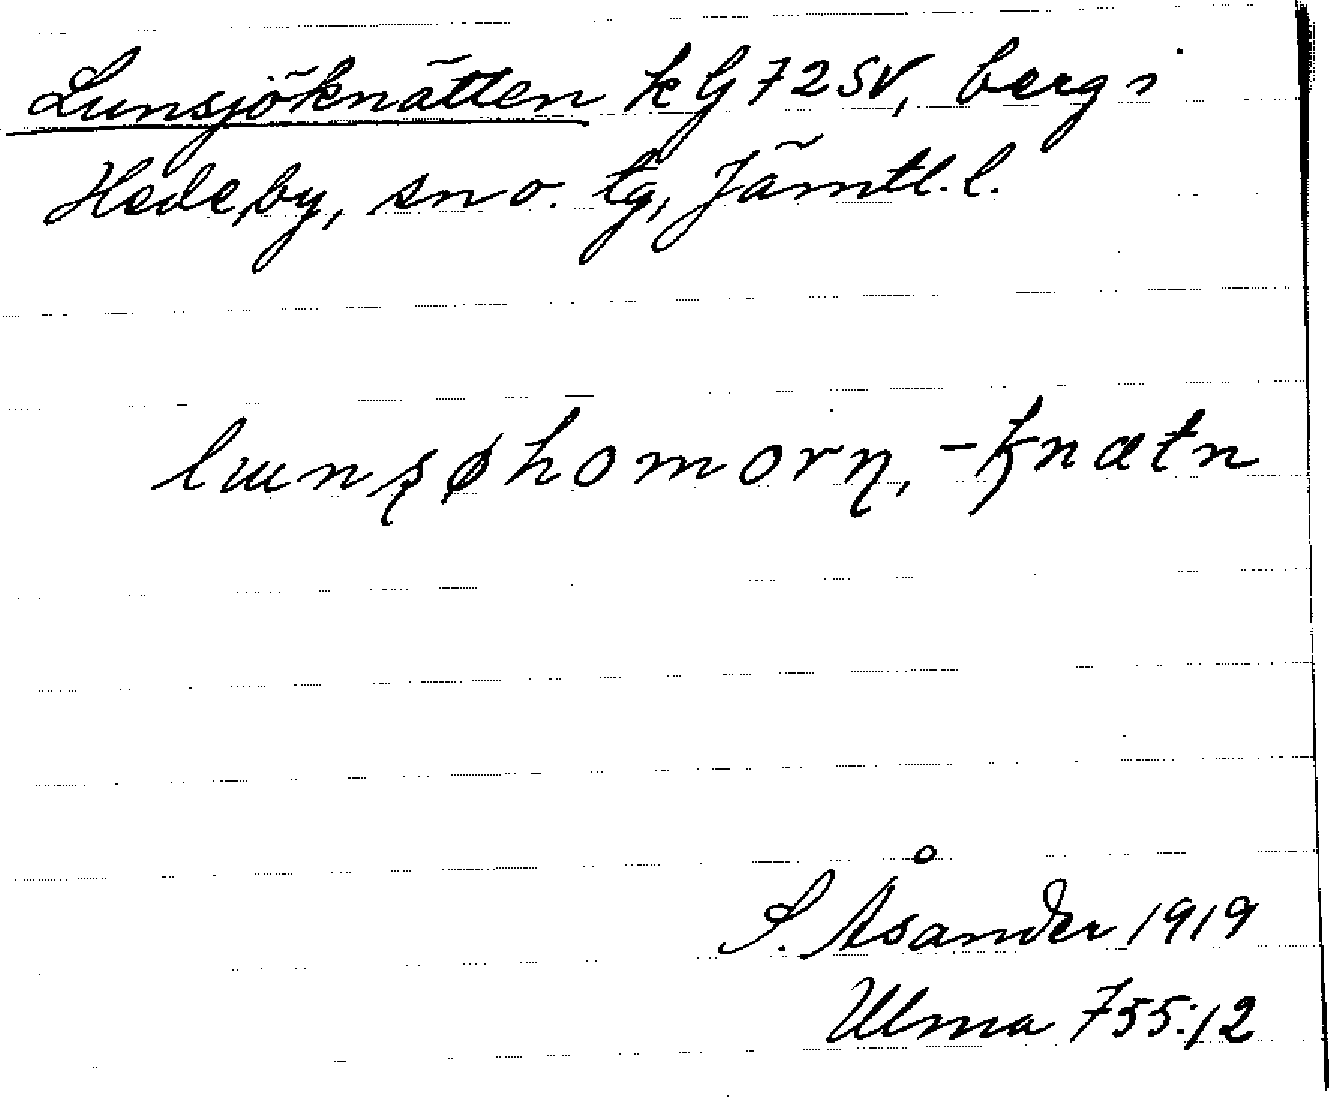 Lunsjöknätten kG72SV, berg i
Hede, by, sn o. tg, Jämtl. l.
lɯnʂøhomorɳ, -ꞣnætn
S. Åsander 1919
Ulma 755:12